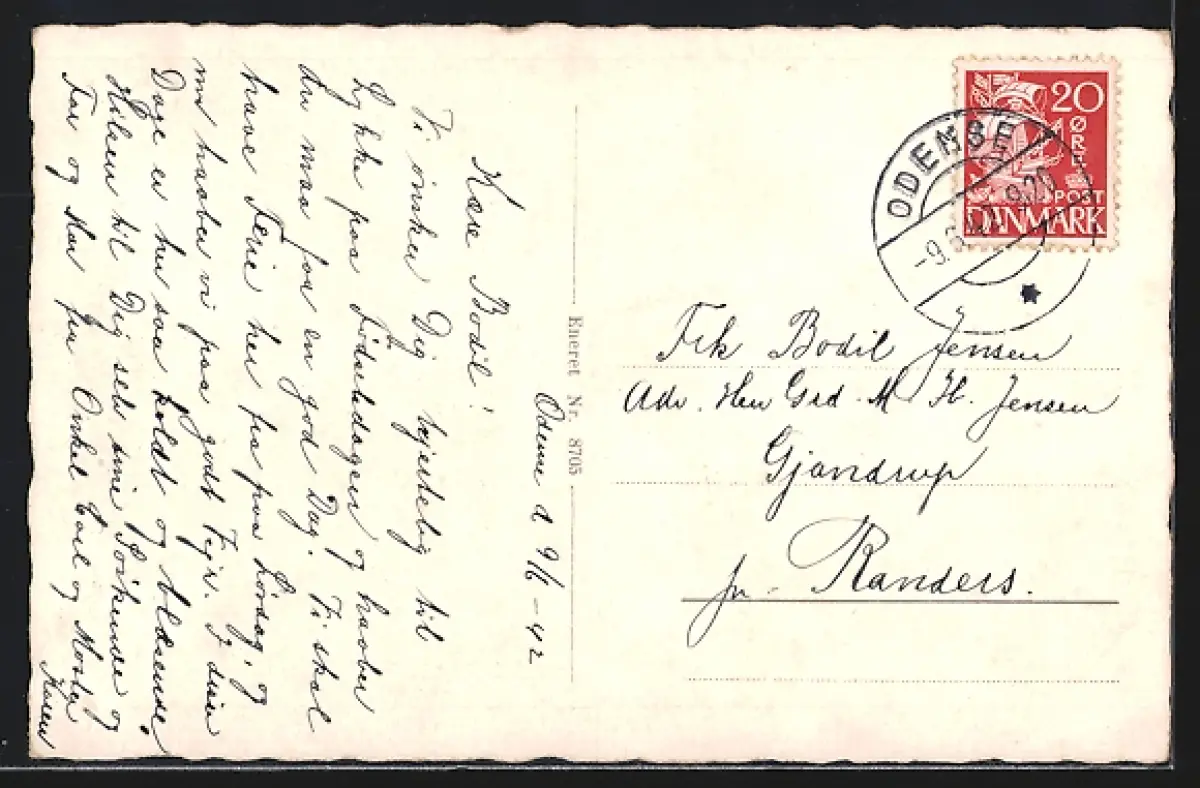 Odense d 9/6 - 42
Kære Bodil!
Vi ønsker Dig hjertelig til
Lykke paa Fødselsdagen og haaber
du maa faa en god Dag. Vi skal
have Ferie her fra paa Lørdag, og
nu haaber vi paa godt Vejr.
Dage er her saa koldt og blæsende,
Hilsen til Dig selv sine Søskende og
Far og Mor fra Onkel Carl og Moster
Karen
Eneret Nr. 8705
20
ØRE
POST
DANMARK
ODENSE
-9.6.42. 9.20
Frk Bodil Jensen
Adr. Herr Grd. M H. Jensen
Gjandrup
pr. Randers.